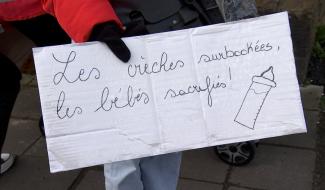 Les crèches surbookées,
les bébés sacrifiés!